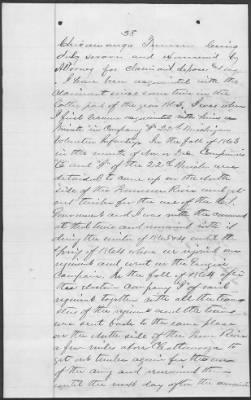 28
Chickamauga Tennessee being
duly sworn and examined by
Attorney for claimant deposes & says
I have been acquainted with the
claimant since some time in the
latter part of the year 1863, I was when
I first became acquainted with him a
Private in Company "F" 22d Michigan
Volunteer Infantry. In the fall of 1863
in the month of Companies
and "F" of the 22d Mich were
detailed to go up on the north
side of the Tennessee River and get
out timber for the use of the U.S.
Government and I was with the command
at that time and remained with it
during the winter of 1863 & 4 until the
Spring of 1864 when we rejoined our
regiment and went on the
Campaign. In the fall of 1864 after
the election Company "F" of said
regiment together with all the teams
also of the regiment and the teams
were sent back to the same place
on the north side of the Tenn River
a few miles above Chattanooga to
get out timber again for the use
of the army and remained there
until the next day after the